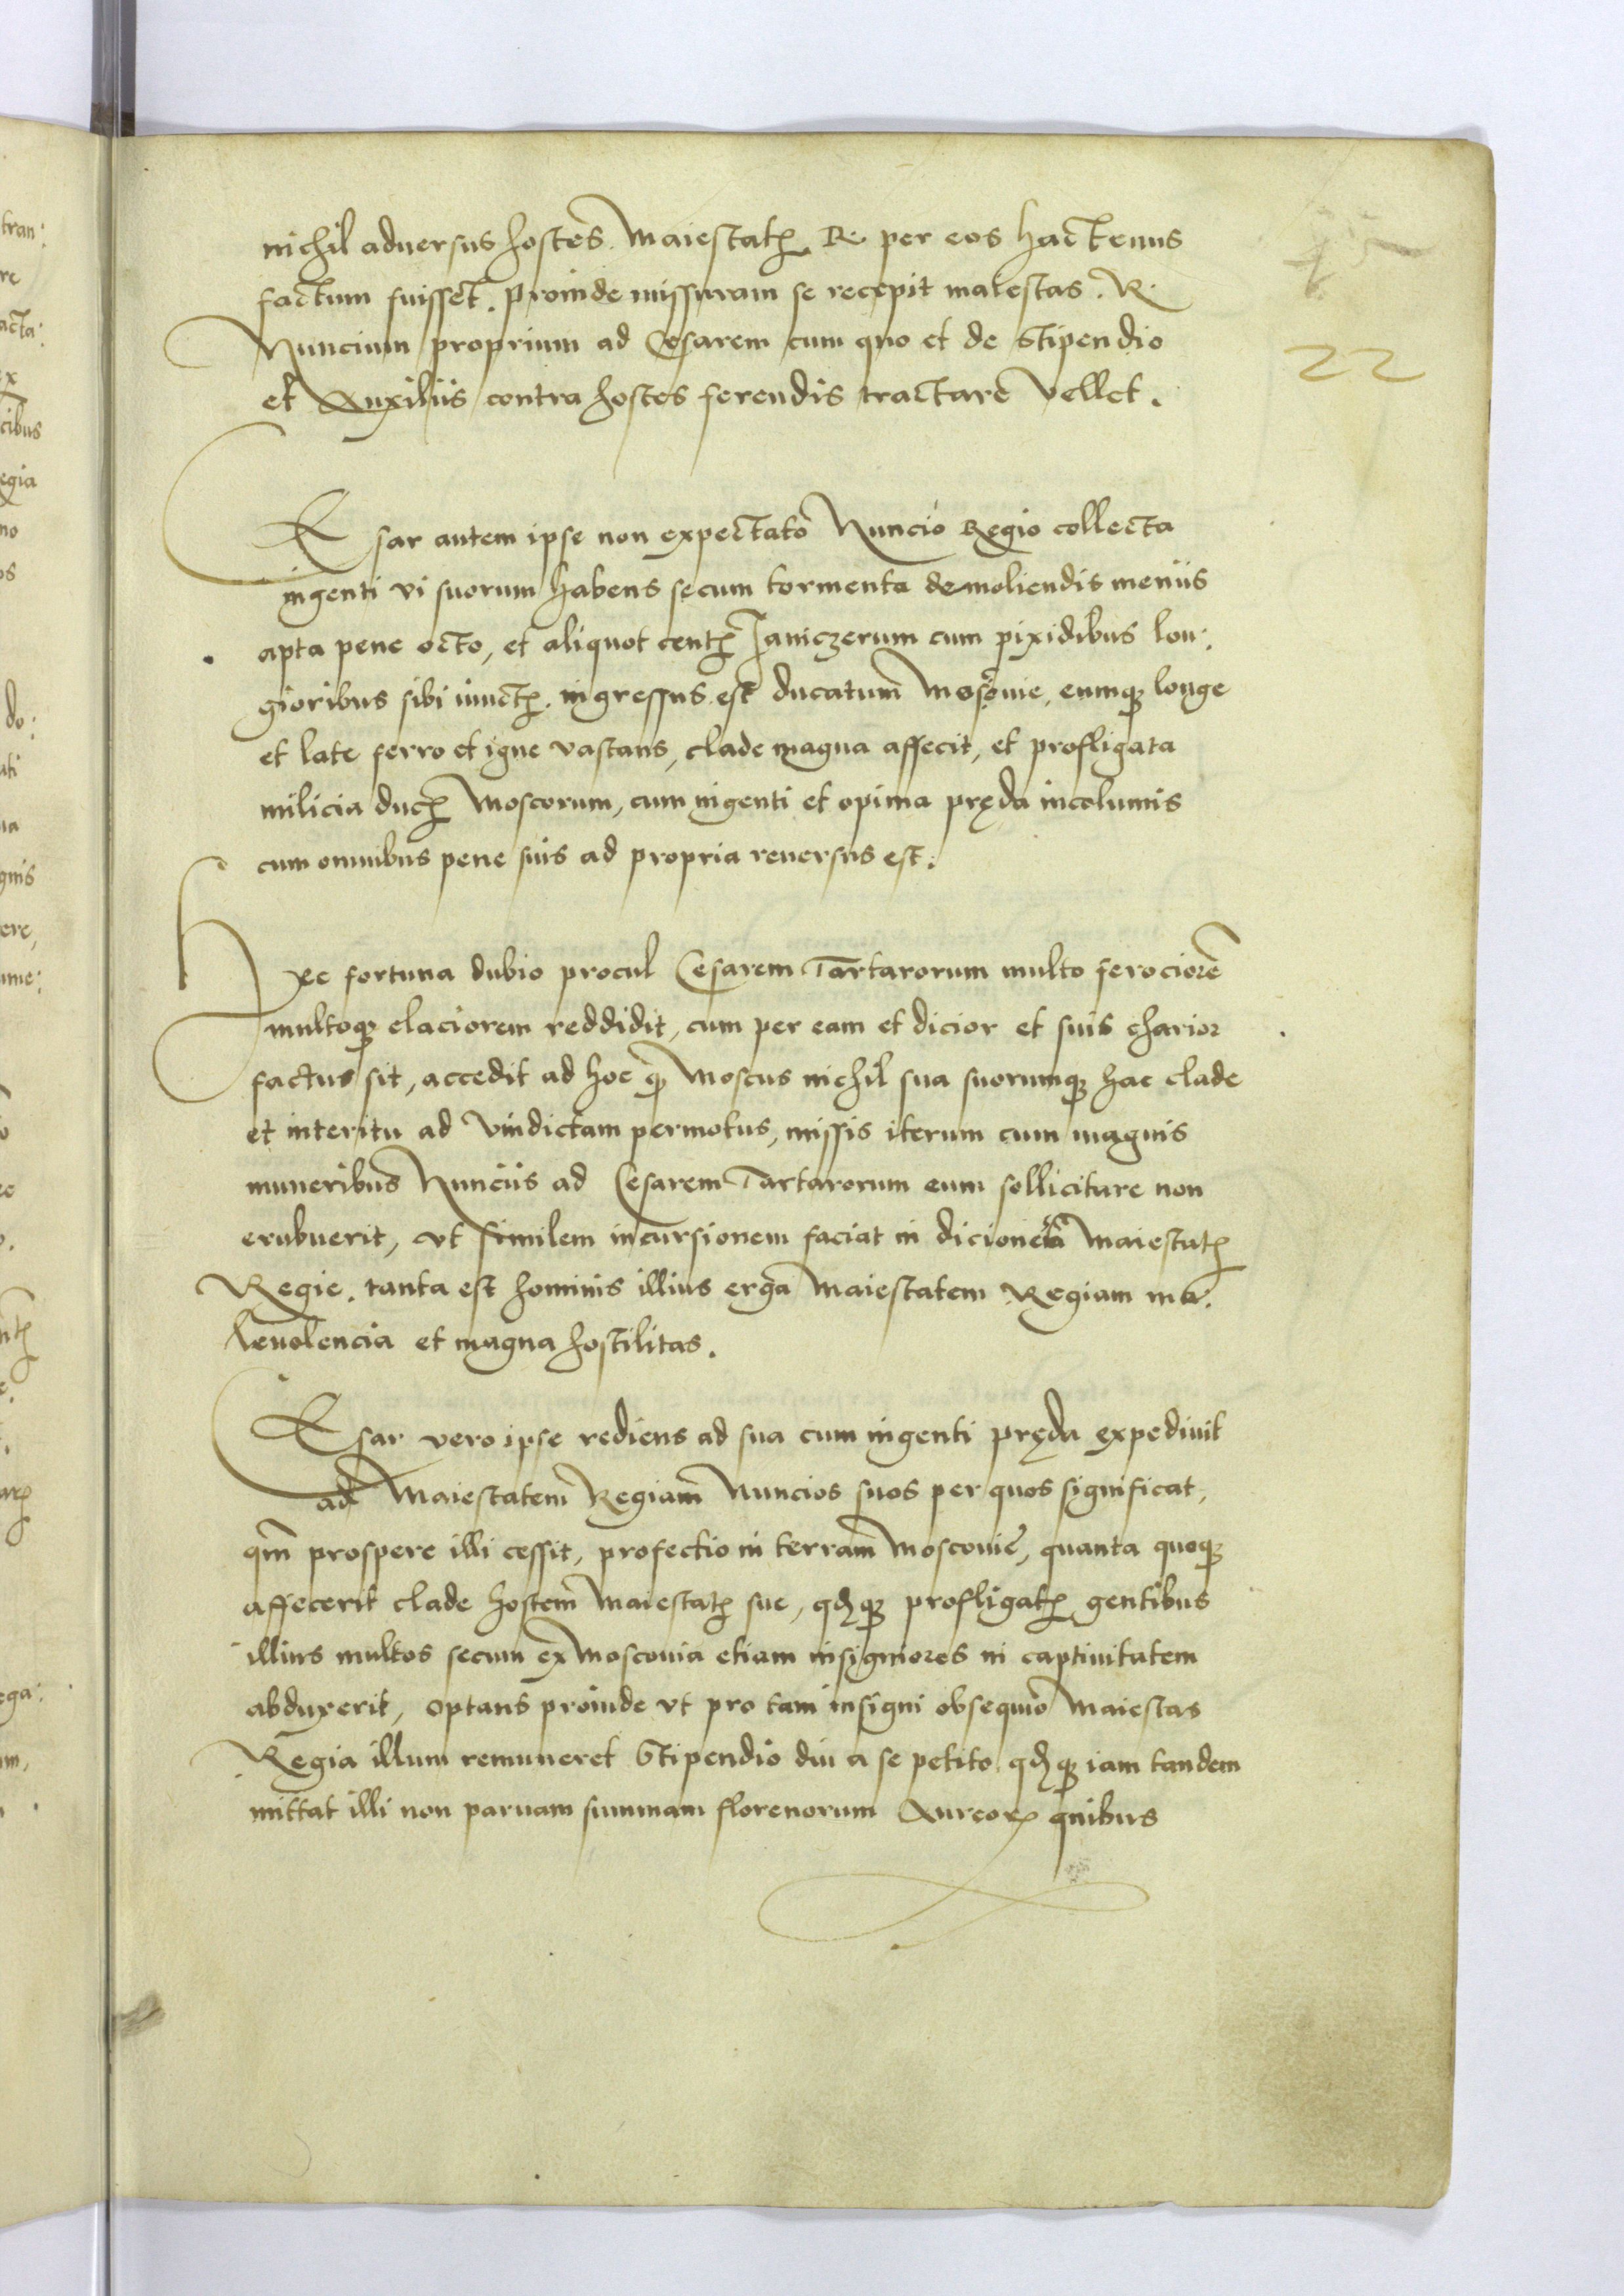 nichil aduersus hostes Maiestatꝭ R. per eos hactenus
factum fuisset. Proinde missuram se recepit maiestas. R.
Nuncium proprium ad Cesarem cum quo et de stipendio
et Auxiliis contra hostes ferendis tractare vellet.
22
CEsar autem ipse non expectato Nuncio Regio collecta
ingenti vi suorum habens secum tormenta demoliendis meniis
apta pene octo, et aliquot centꝭ Janiczerum cum pixidibus lon:
gioribus sibi iunctꝭ. ingressus est ducatum Moscouie, eumqꝫ longe
et late ferro et igne vastans, clade magna affecit, et profligata
milicia ducꝭ Moscorum, cum ingenti et opima pręda incolumis
cum omnibus pene suis ad propria reuersus est.
Hec fortuna dubio procul Cesarem Tartarorum multo ferociorē
multoqꝫ elaciorem reddidit, cum per eam et dicior et suis charior
factus sit, accedit ad hoc ꝙ Moscus nichil sua suorumqꝫ hac clade
et interitu ad vindictam permotus, missis iterum cum magnis
muneribus Nunciis ad Cesarem Tartarorum eum sollicitare non
erubuerit, vt similem incursionem faciat in Maiestatꝭ
Regie. tanta est hominis illius erga Maiestatem Regiam ma:
leuolencia et magna hostilitas.
CEsar vero ipse rediens ad sua cum ingenti pręda expediuit
ad Maiestatem Regiam Nuncios suos per quos significat,
qm̄ prospere illi cessit, profectio in terram Moscouie, quanta quoqꝫ
affecerit clade hostem Maiestatꝭ sue, qđqꝫ profligatꝭ gentibus
illius multos secum ex Moscouia etiam insigniores in captiuitatem
abduxerit, optans proinde vt pro tam insigni obsequio Maiestas
Regia illum remuneret Stipendio diu a se petito qđqꝫ iam tandem
mittat illi non paruam summam florenorum Aureoꝝ quibus